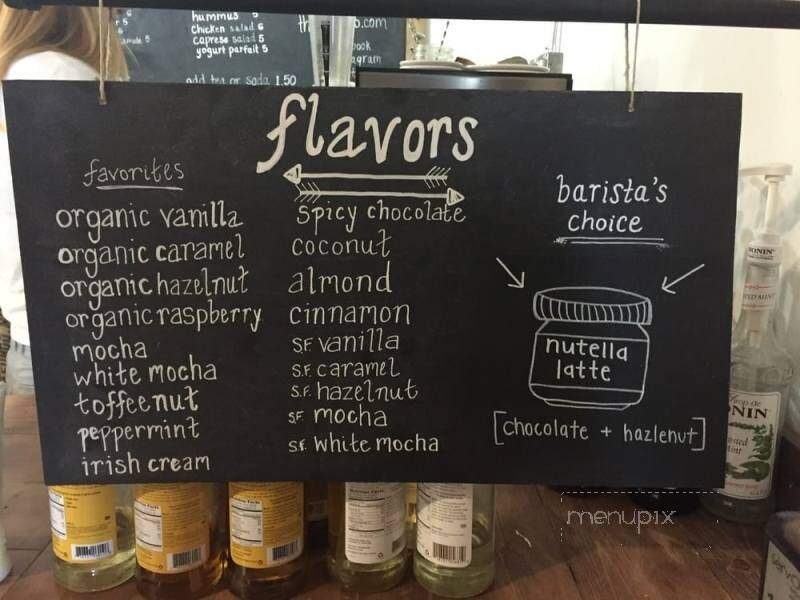 hummus 5
chicken salad 6
caprese salad 5
yogurt parfait 5
add tea or soda 1.50
flavors
favorites
organic vanilla
organic caramel
organic hazelnut
organic raspberry
mocha
white mocha
toffeenut
peppermint
irish cream
spicy chocolate
coconut
almond
cinnamon
S.F. vanilla
S.F. caramel
S.F. hazelnut
SF mocha
S.F. white mocha
barista's
choice
nutella
latte
[chocolate + hazlenut]
menupix